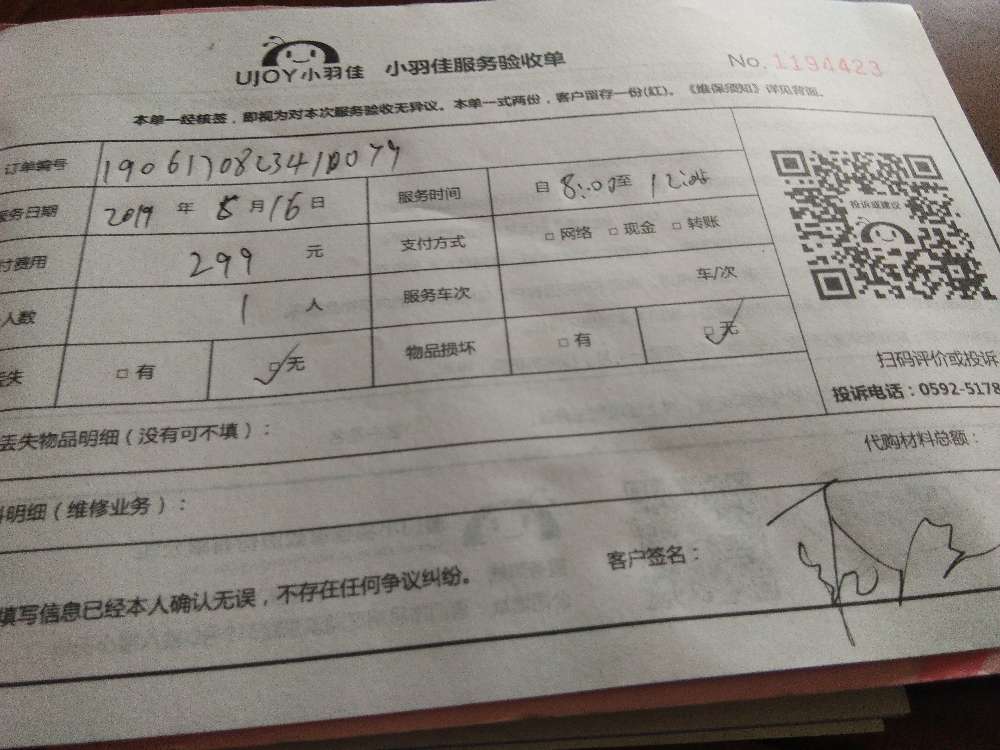 UJOY小羽佳 小羽佳服务验收单 No.1194423
本单一经核签，即视为对本次服务验收无异议。本单一式两份，客户留存一份(红)。《维保须知》详见背面。
订单编号
服务日期 2019 年 8 月 16 日 服务时间 自 8:00 至
付费用 299 元 支付方式 □ 网络 □ 现金 □ 转账
人数 1 人 服务车次 车/次
丢失 □ 有 □ 无 物品损坏 □ 有 □ 无
投诉或建议
扫码评价或投诉
投诉电话：0592-5178
丢失物品明细（没有可不填）：
代购材料总额：
料明细（维修业务）：
填写信息已经本人确认无误，不存在任何争议纠纷。 客户签名：